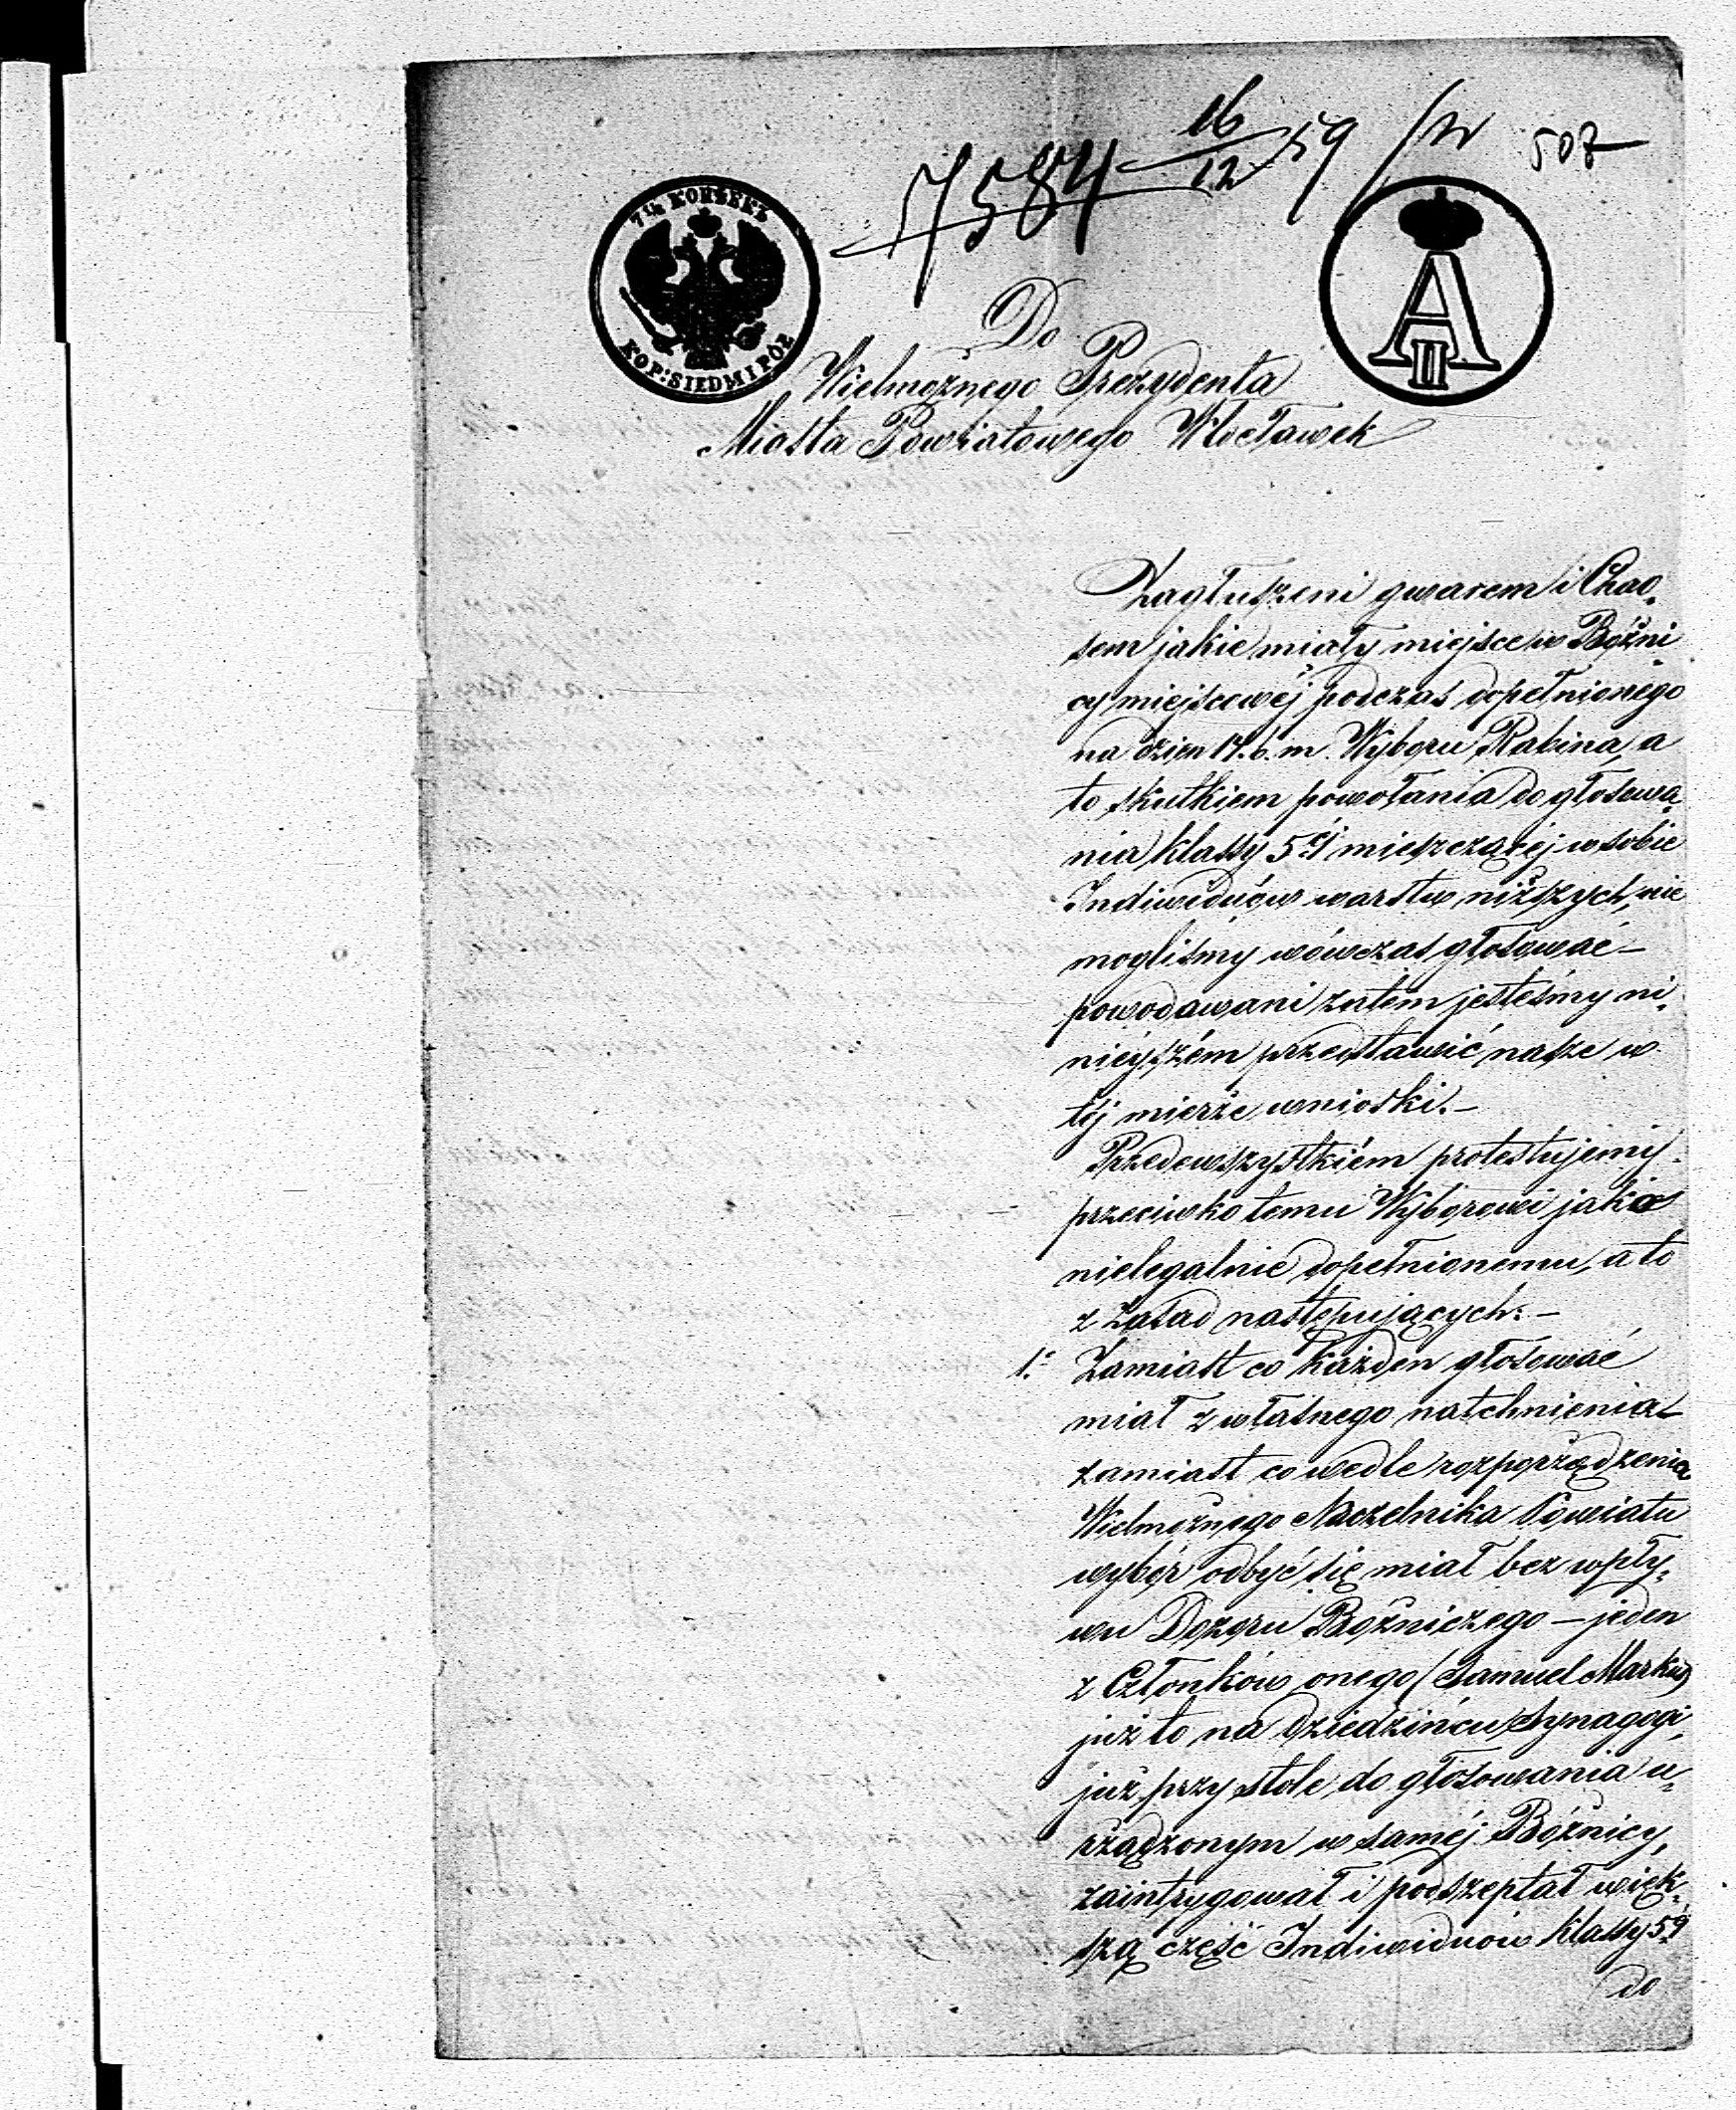 7584 16/12 59 507
7½ КОПѢЕКЪ
KOP: SIEDM I PÓŁ
A II
Do
Wielmożnego Prezydenta
Miasta Powiatowego Włocławek
Zagłuszeni gwarem i Chao„
sem jakie miały miejsce w Bóżni„
cy miejscowéj podczas dopełnionego
na dzien 14. b. m. Wyboru Rabina, a
to skutkiem powołania do głosowa„
nia klassy 5éj mieszczącéj w sobie
Indiwiduów warstw niższych, nie
mogliśmy wówczas głosować –
powodowani zatém jesteśmy ni„
niéjszém przedstawić nasze w
téj mierze wnioski. –
Przedewszystkiém protestujemy
przeciwko temu Wyborowi jako
nielegalnie dopełnionemu, a to
z zasad następujących: –
1. Zamiast co każden głosować
miał z własnego natchnienia –
zamiast co wedle rozporządzenia
Wielmożnego Naczelnika Powiatu
wybór odbyć się miał bez wpły„
wu Dozoru Bóżniczego – jeden
z Członków onego (Samuel Markus)
już to na dziedzińcu Synagogi,
już przy stole do głosowania u„
rządzonym w saméj Bóżnicy,
zaintrygował i podszeptał więk„
szą część Indiwiduów klassy 5éj
do